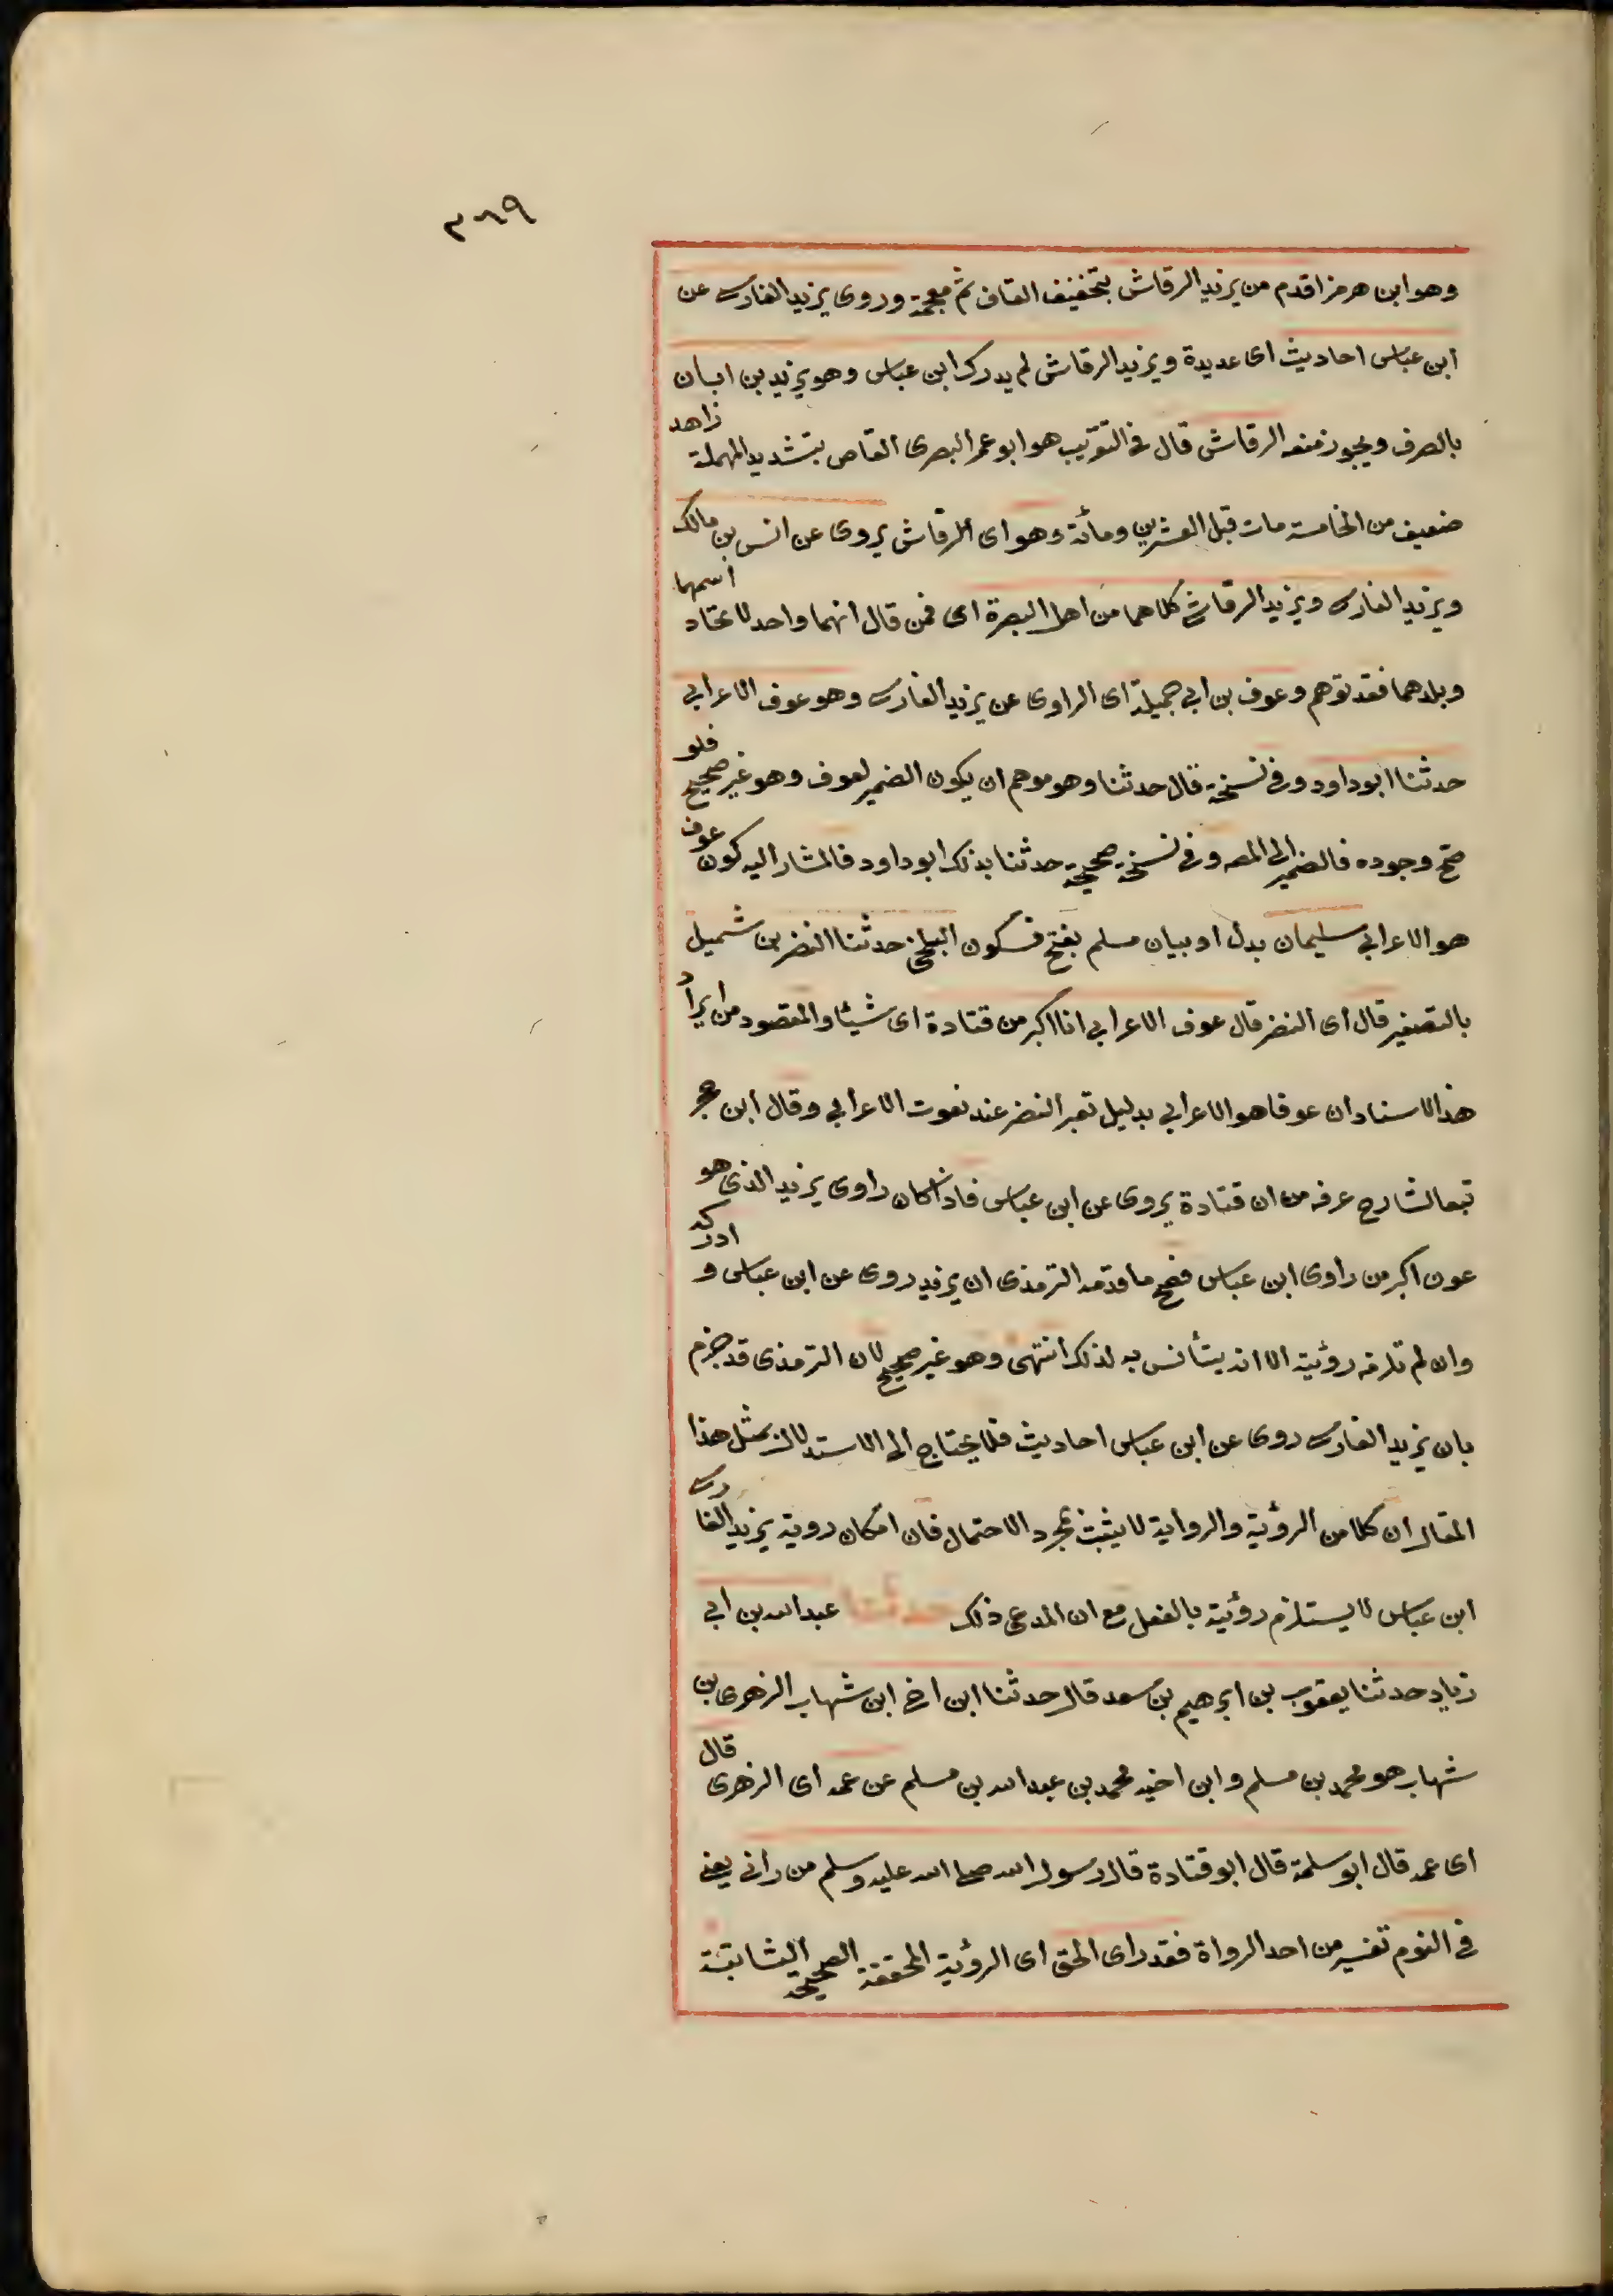 ٣٨٩
وهو ابن هرمز اقدم من يزيد الرقاشى بتخفيف القاف ثم معجمة وروى يزيد الفارسى عن
ابن عباس احاديث اى عديدة ويزيد الرقاشى لم يدرك ابن عباس وهو يزيد بن ابان
بالصرف ويجوز منعه الرقاشى قال فى التقريب هو ابو عمر البصرى القاص بتشديد المهملة زاهد
ضعيف من الخامسة مات قبل العشرين ومائة وهو اى الرقاشى يروى عن انس بن مالك
ويزيد الفارسى ويزيد الرقاشى كلاهما من اهل البصرة اى فمن قال انهما واحد لاتحاد اسمهما
وبلدهما فقد توهم وعوف بن ابى جميلة اى الراوى عن يزيد الفارسى وهو عوف الاعرابى
حدثنا ابو داود وفى نسخة قال حدثنا وهو موهم ان يكون الضمير لعوف وهو غير صحيح فلو
صح وجوده فالضمير الى المصه وفى نسخة صحيحة حدثنا بذلك ابو داود فالمشار اليه كون عوف
هو الاعرابى سليمان بدل او بيان مسلم بفتح فسكون البلخى حدثنا النضر بن شميل
بالتصغير قال اى النضر قال عوف الاعرابى انا اكبر من قتادة اى شيئا والمقصود من ايراد
هذا الاسناد ان عوفا هو الاعرابى بدليل تعبر النضر عنه بعوت الاعرابى وقال ابن حجر
تبعا لشارح عرفه من ان قتادة يروى عن ابن عباس فاذا كان راوى يزيد الذى هو
عون اكبر من راوى ابن عباس فصح ما قدمه الترمذى ان يزيد روى عن ابن عباس و ادركه
وان لم تلزمه رؤيته الا انه يستأنس به لذلك انتهى وهو غير صحيح لان الترمذى قد جزم
بان يزيد الفارسى روى عن ابن عباس احاديث فلا يحتاج الى الاستدلال بمثل هذا
المقال ان كلا من الرؤية والرواية لا يثبت بمجرد الاحتمال فان امكان روية يزيد الفارسى
ابن عباس لا يستلزم رؤيته بالفعل مع ان المدعى ذلك حدثنا عبد الله بن ابى
زياد حدثنا يعقوب بن ابرهيم بن سعد قال حدثنا ابن اخى ابن شهاب الزهرى بن
شهاب هو محمد بن مسلم وابن اخيه محمد بن عبد الله بن مسلم عن عمه اى الزهرى قال
اى عمه قال ابو سلمة قال ابو قتادة قال رسول الله صلى الله عليه وسلم من رانى يعنى
فى النوم تفسير من احد الرواة فقد راى الحق اى الرؤية المحققة الصحيحة الثابتة